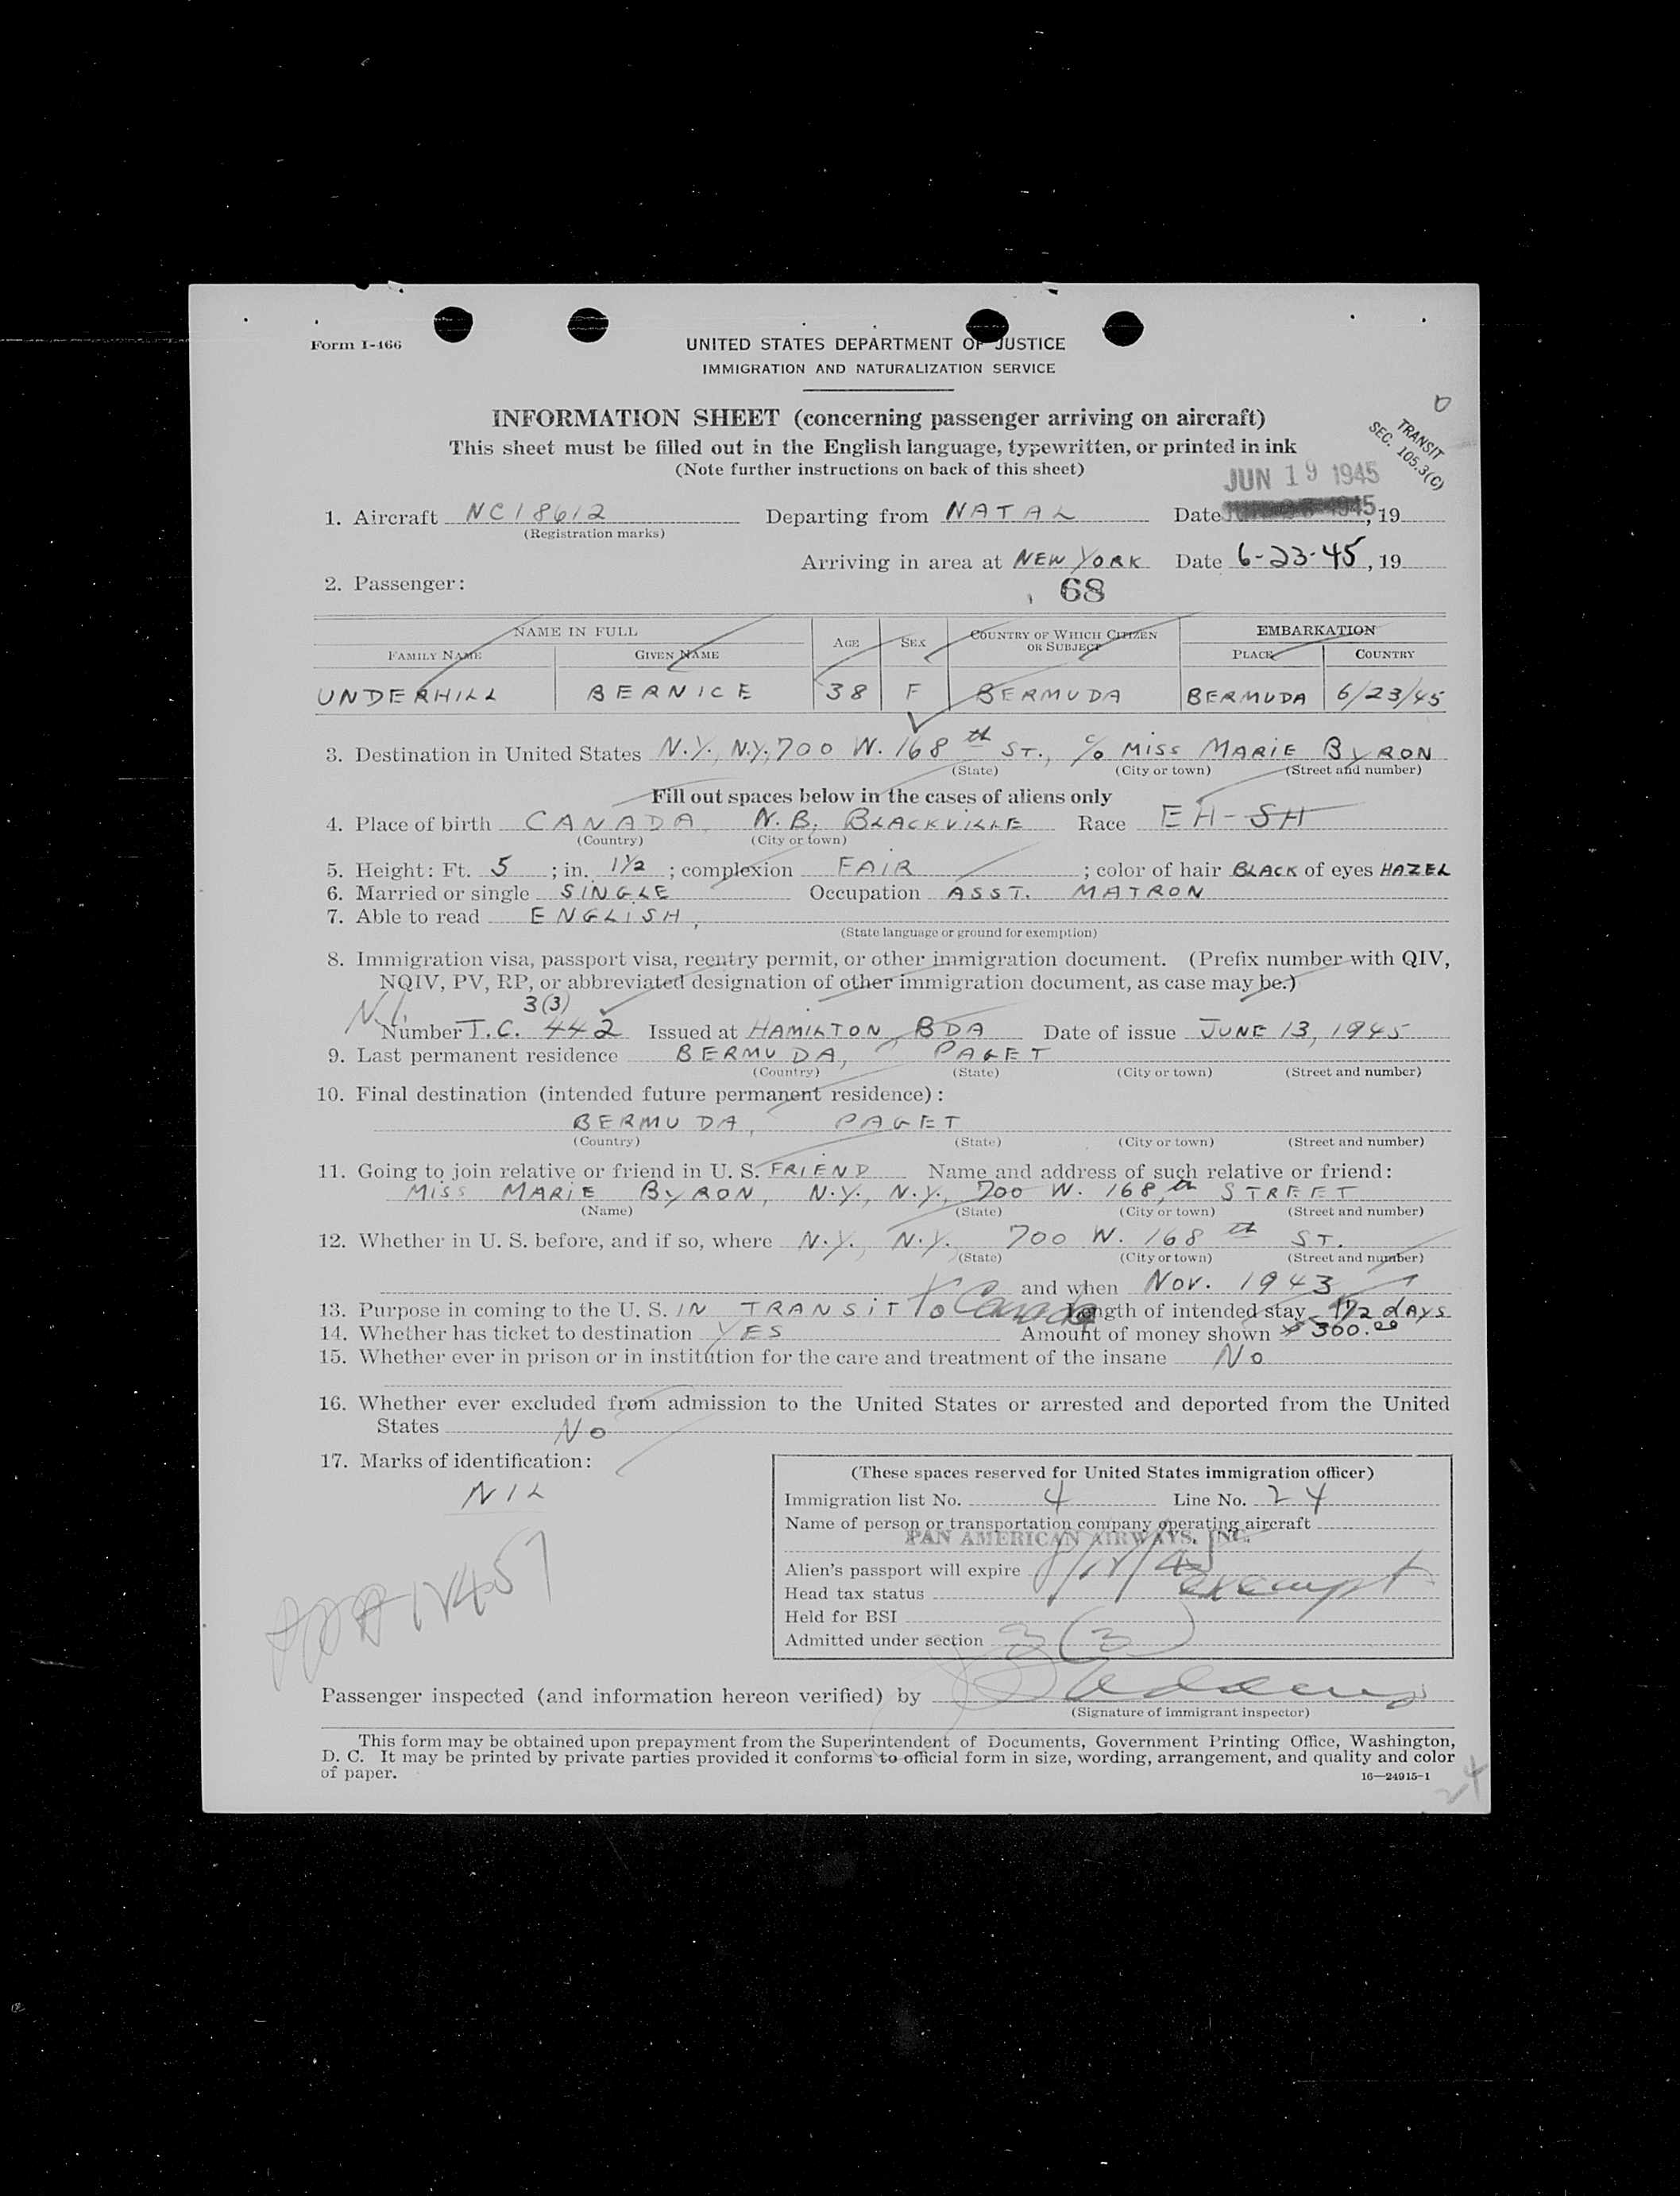 Form I-466
UNITED STATES DEPARTMENT OF JUSTICE
IMMIGRATION AND NATURALIZATION SERVICE
INFORMATION SHEET (concerning passenger arriving on aircraft)
This sheet must be filled out in the English language, typewritten, or printed in ink
(Note further instructions on back of this sheet)
TRANSIT
SEC. 105.3(C)
JUN 19 1945
1. Aircraft NC18612 Departing from NATAL Date 1945, 19
(Registration marks)
Arriving in area at NEW YORK Date 6-23-45, 19
2. Passenger:
68
NAME IN FULL AGE SEX COUNTRY OF WHICH CITIZEN OR SUBJECT EMBARKATION
FAMILY NAME GIVEN NAME PLACE COUNTRY
UNDERHILL BERNICE 38 F BERMUDA BERMUDA 6/23/45
3. Destination in United States N.Y., N.Y., 700 W. 168th ST., c/o MISS MARIE BYRON
(State) (City or town) (Street and number)
Fill out spaces below in the cases of aliens only
4. Place of birth CANADA, N.B. BLACKVILLE Race
(Country) (City or town)
5. Height: Ft. 5; in. 1½; complexion FAIR; color of hair BLACK of eyes HAZEL
6. Married or single SINGLE Occupation ASST. MATRON
7. Able to read ENGLISH,
(State language or ground for exemption)
8. Immigration visa, passport visa, reentry permit, or other immigration document. (Prefix number with QIV,
NQIV, PV, RP, or abbreviated designation of other immigration document, as case may be.)
3(3)
Number T.C. 442 Issued at HAMILTON, BDA Date of issue JUNE 13, 1945
9. Last permanent residence BERMUDA, PAGET
(Country) (State) (City or town) (Street and number)
10. Final destination (intended future permanent residence):
BERMUDA, PAGET
(Country) (State) (City or town) (Street and number)
11. Going to join relative or friend in U. S. FRIEND Name and address of such relative or friend:
MISS MARIE BYRON, N.Y., N.Y., 700 W. 168,th STREET
(Name) (State) (City or town) (Street and number)
12. Whether in U. S. before, and if so, where N.Y., N.Y. 700 W. 168th ST.
(State) (City or town) (Street and number)
and when Nov. 1943
13. Purpose in coming to the U. S. IN TRANSIT To Canada Length of intended stay 1½ dAYS
14. Whether has ticket to destination YES Amount of money shown $300.00
15. Whether ever in prison or in institution for the care and treatment of the insane No
16. Whether ever excluded from admission to the United States or arrested and deported from the United
States No
17. Marks of identification:
NIL
(These spaces reserved for United States immigration officer)
Immigration list No. 4 Line No. 24
Name of person or transportation company operating aircraft
PAN AMERICAN AIRWAYS, INC.
Alien's passport will expire
Head tax status exempt
Held for BSI
Admitted under section 3(3)
Passenger inspected (and information hereon verified) by
(Signature of immigrant inspector)
This form may be obtained upon prepayment from the Superintendent of Documents, Government Printing Office, Washington,
D. C. It may be printed by private parties provided it conforms to official form in size, wording, arrangement, and quality and color
of paper.
16—24915-1
24